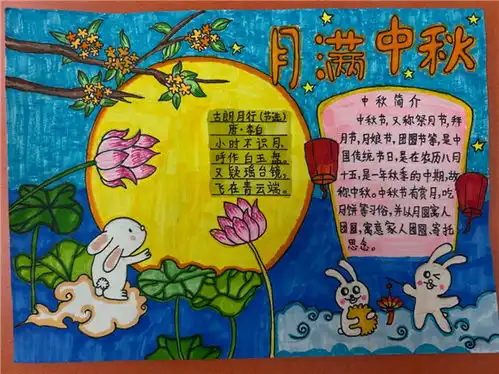 月满中秋
古朗月行(节选)
唐·李白
小时不识月,
呼作白玉盘。
又疑瑶台镜,
飞在青云端。
中秋简介
中秋节,又称祭月节,拜
月节,月娘节,团圆节等,是中
国传统节日,是在农历八月
十五,是一年秋季的中期,故
称中秋。中秋节有赏月、吃
月饼等习俗,并以月圆寓人
团圆,寓意家人团圆、寄托
思念。